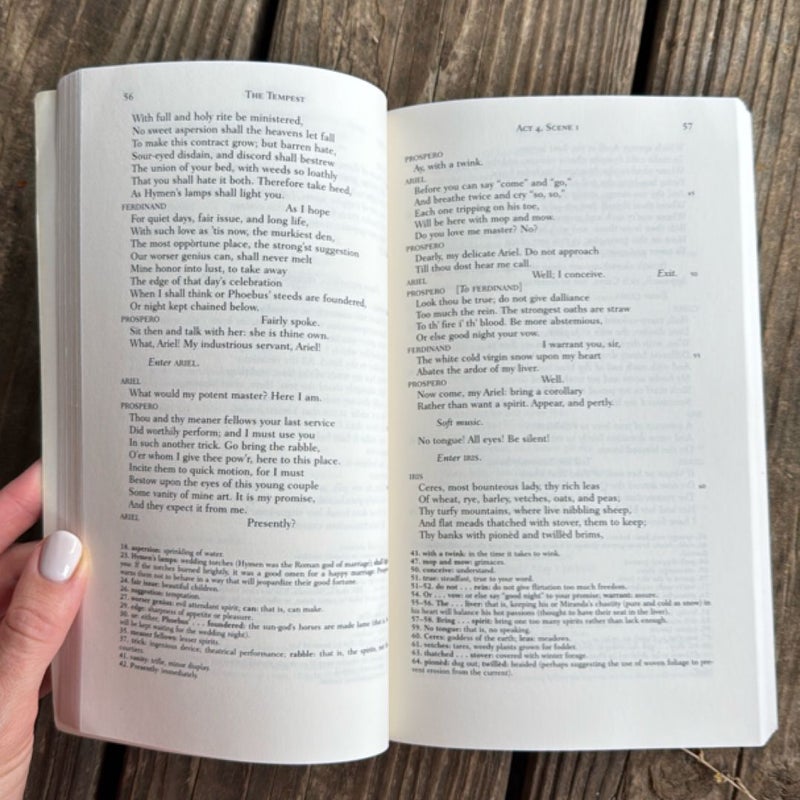 56
THE TEMPEST
With full and holy rite be ministered,
No sweet aspersion shall the heavens let fall
To make this contract grow; but barren hate,
Sour-eyed disdain, and discord shall bestrew
The union of your bed, with weeds so loathly
That you shall hate it both. Therefore take heed,
As Hymen's lamps shall light you.
FERDINAND As I hope
For quiet days, fair issue, and long life,
With such love as 'tis now, the murkiest den,
The most oppòrtune place, the strong'st suggestion
Our worser genius can, shall never melt
Mine honor into lust, to take away
The edge of that day's celebration
When I shall think or Phoebus' steeds are foundered,
Or night kept chained below.
PROSPERO Fairly spoke.
Sit then and talk with her: she is thine own.
What, Ariel! My industrious servant, Ariel!
Enter ARIEL.
ARIEL
What would my potent master? Here I am.
PROSPERO
Thou and thy meaner fellows your last service
Did worthily perform; and I must use you
In such another trick. Go bring the rabble,
O'er whom I give thee pow'r, here to this place.
Incite them to quick motion, for I must
Bestow upon the eyes of this young couple
Some vanity of mine art. It is my promise,
And they expect it from me.
ARIEL Presently?
18. aspersion: sprinkling of water.
23. Hymen's lamps: wedding torches (Hymen was the Roman god of marriage);
you. If the torches burned brightly, it was a good omen for a happy marriage.
warns them not to behave in a way that will jeopardize their good fortune.
24. fair issue: beautiful children.
26. suggestion: temptation.
27. worser genius: evil attendant spirit; can: that is, can make.
29. edge: sharpness of appetite or pleasure.
30. or: either; Phoebus' . . . foundered: the sun-god's horses are made lame
will be kept waiting for the wedding night).
35. meaner fellows: lesser spirits.
37. trick: ingenious device, theatrical performance; rabble: that is, the spirits,
courtiers.
41. vanity: trifle, minor display.
42. Presently: immediately.
ACT 4, SCENE 1
57
PROSPERO
Ay, with a twink.
ARIEL
Before you can say "come" and "go,"
And breathe twice and cry "so, so," 45
Each one tripping on his toe,
Will be here with mop and mow.
Do you love me master? No?
PROSPERO
Dearly, my delicate Ariel. Do not approach
Till thou dost hear me call.
ARIEL Well; I conceive. Exit. 50
PROSPERO [To FERDINAND]
Look thou be true; do not give dalliance
Too much the rein. The strongest oaths are straw
To th' fire i' th' blood. Be more abstemious,
Or else good night your vow.
FERDINAND I warrant you, sir,
The white cold virgin snow upon my heart 55
Abates the ardor of my liver.
PROSPERO Well.
Now come, my Ariel: bring a corollary
Rather than want a spirit. Appear, and pertly.
Soft music.
No tongue! All eyes! Be silent!
Enter IRIS.
IRIS
Ceres, most bounteous lady, thy rich leas 60
Of wheat, rye, barley, vetches, oats, and peas;
Thy turfy mountains, where live nibbling sheep,
And flat meads thatched with stover, them to keep;
Thy banks with pionèd and twillèd brims,
43. with a twink: in the time it takes to wink.
47. mop and mow: grimaces.
50. conceive: understand.
51. true: steadfast, true to your word.
51–52. do not . . . rein: do not give flirtation too much freedom.
54. Or . . . vow: or else say "good night" to your promise; warrant: assure.
55–56. The . . . liver: that is, keeping his or Miranda's chastity (pure and cold as snow) in
his heart will balance his hot passions (thought to have their seat in the liver).
57–58. Bring . . . spirit: bring one too many spirits rather than lack enough.
59. No tongue: that is, no speaking.
60. Ceres: goddess of the earth; leas: meadows.
61. vetches: tares, weedy plants grown for fodder.
63. thatched . . . stover: covered with winter forage.
64. pionèd: dug out; twillèd: braided (perhaps suggesting the use of woven foliage to pre-
vent erosion from the current).